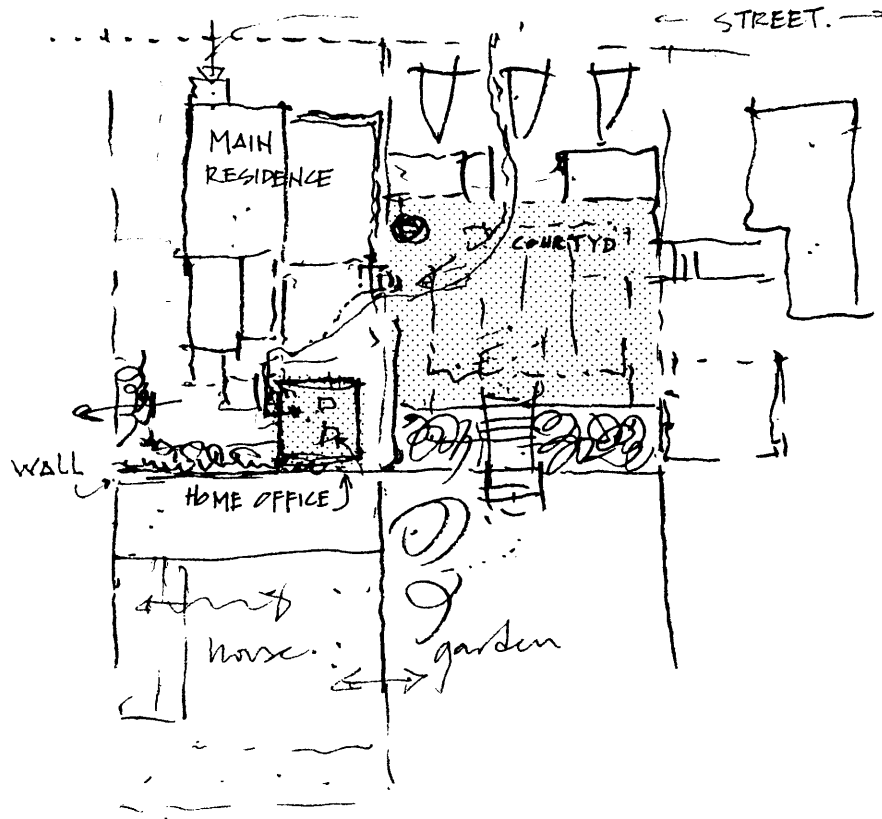 STREET.
MAIN
RESIDENCE
COURTYD
WALL
HOME OFFICE
house.
garden